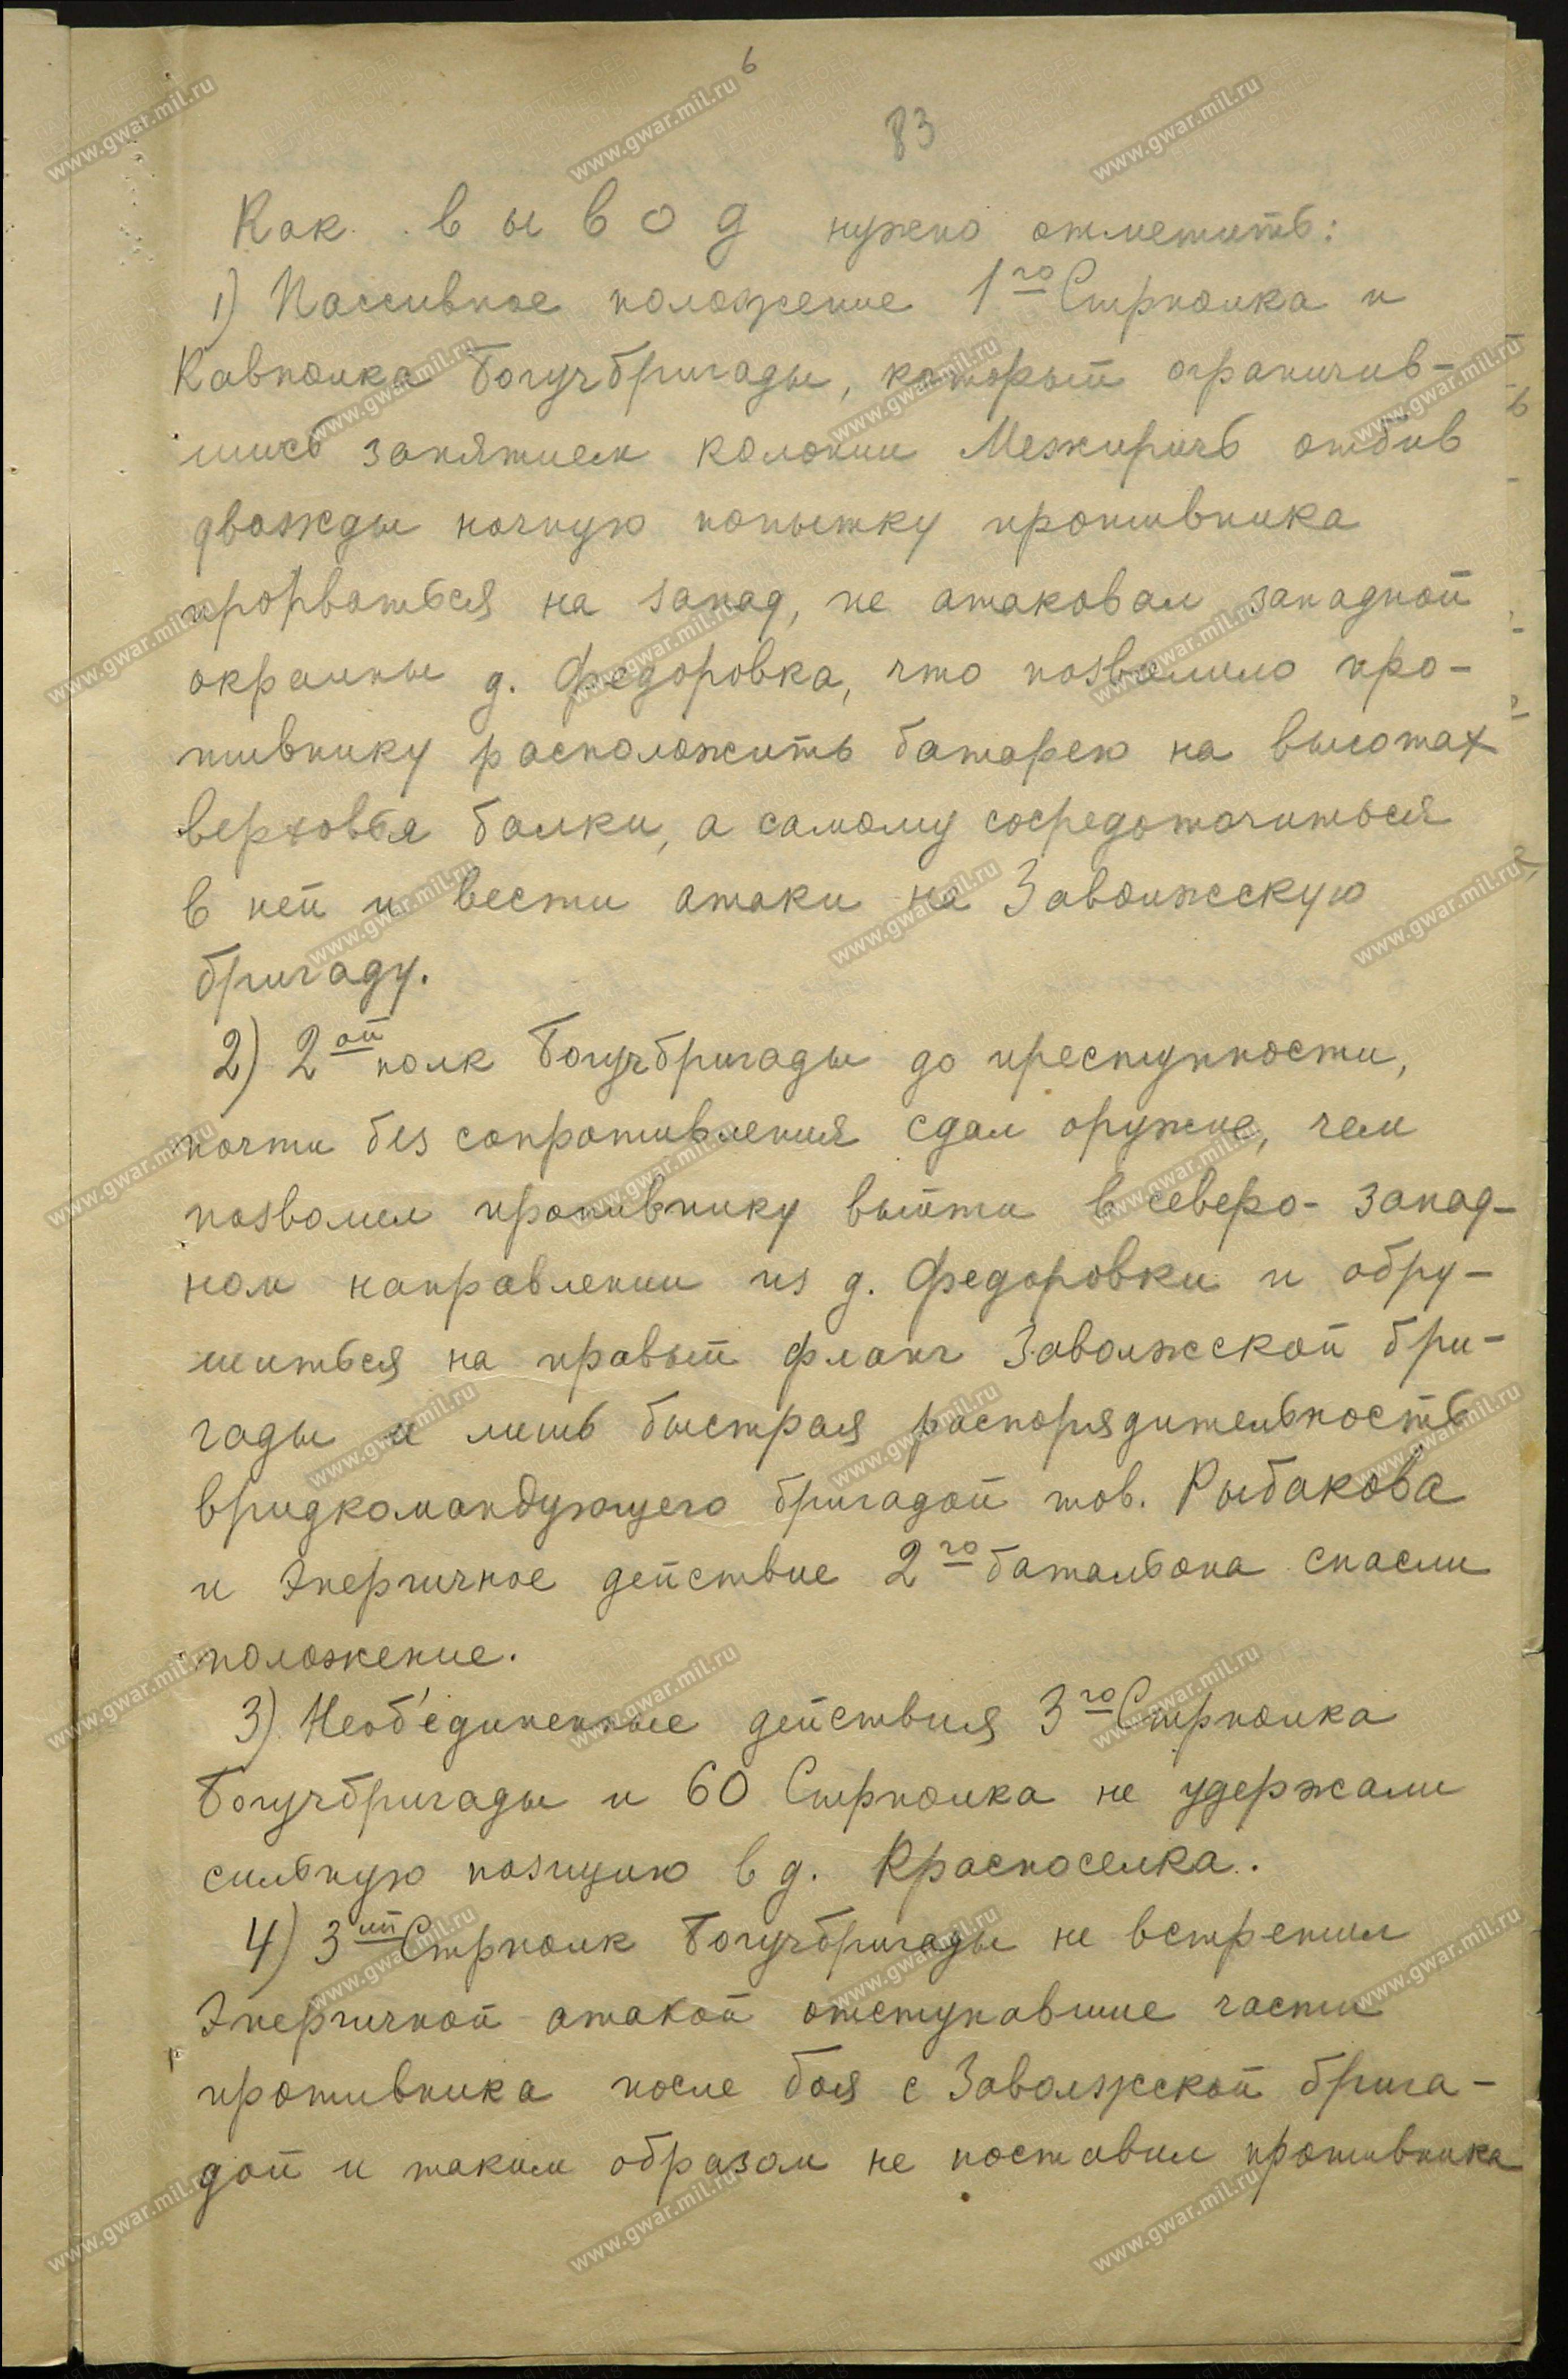 6
83
Как вывод нужно отметить:
1) Пассивное положение 1го Стрполка и
Кавполка Богучбригады, который ограничив-
шись занятием колонии Межиричь отбив
дважды ночную попытку противника
прорваться на запад, не атаковал западной
окраины д. Федоровка, что позволило про-
тивнику расположить батарею на высотах
верховья балки, а самому сосредоточиться
в ней и вести атаки на Заволжскую
бригаду.
2) 2ой полк Богучбригады до преступности,
почти без сопротивления сдал оружие, чем
позволил противнику выйти в северо-запад-
ном направлении из д. Федоровки и обру-
шиться на правый фланг Заволжской бри-
гады и лишь быстрая распорядительность
вридкомандующего бригадой тов. Рыбакова
и энергичное действие 2го батальона спасли
положение.
3) Необ'единенные действия 3го Стрполка
Богучбригады и 60 Стрполка не удержали
сильную позицию в д. Красноселка.
4) 3ий Стрполк Богучбригады не встретил
энергичной атакой отступавшие части
противника после боя с Заволжской брига-
дой и таким образом не поставил противника
www.gwar.mil.ru